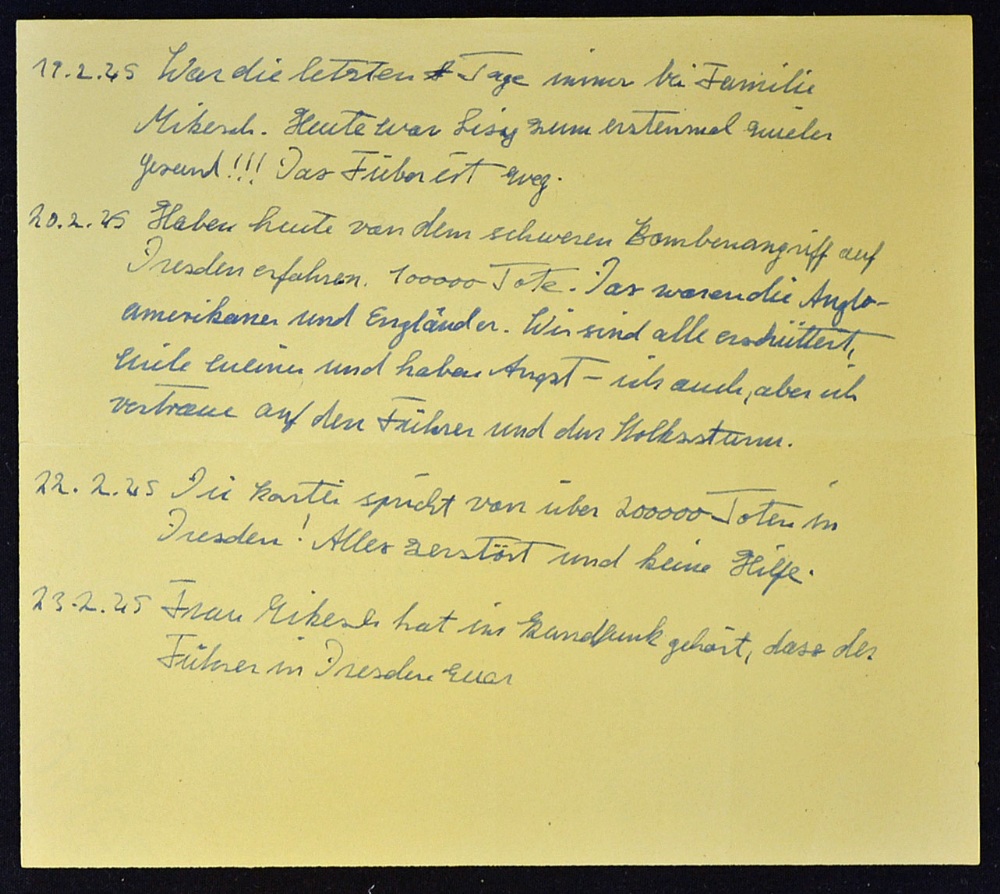 19.2.45 War die letzten Tage immer bei Familie
Mikesch. Heute war Lissy zum erstenmal wieder
gesund!!! Das Fieber ist weg.
20.2.45 Haben heute von dem schweren Bombenangriff auf
Dresden erfahren. 100000 Tote. Das waren die Anglo-
amerikaner und Engländer. Wir sind alle erschüttert,
viele weinen und haben Angst – ich auch, aber ich
vertraue auf den Führer und den Volkssturm.
22.2.45 Die Partei spricht von über 200000 Toten in
Dresden! Alles zerstört und keine Hilfe.
23.2.45 Frau Mikesch hat im Rundfunk gehört, dass der
Führer in Dresden war